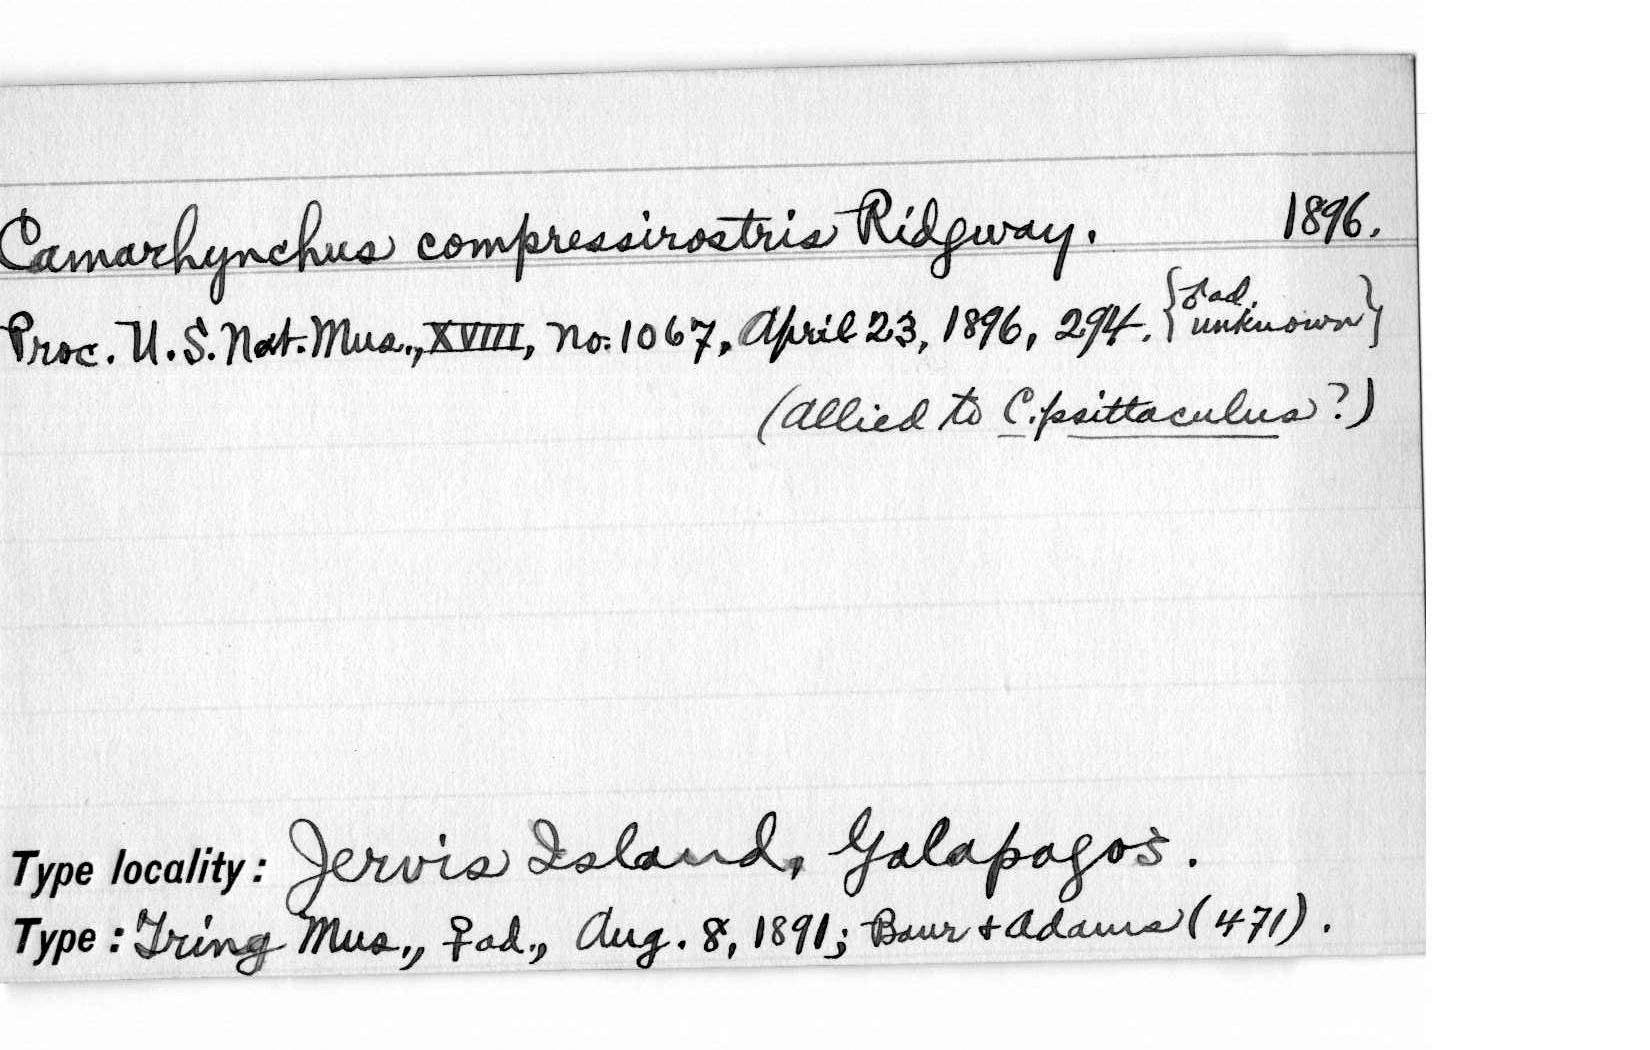 Camarhynchus compressirostris Ridgway. 1896.
Proc. U.S. Nat. Mus., XVIII, no. 1067, April 23, 1896, 294. {♂ ad. unknown}
(allied to C. psittaculus?)
Type locality: Jervis Island, Galapagos.
Type: Tring Mus., ♀ ad., Aug. 8, 1891; Baur + Adams (471).